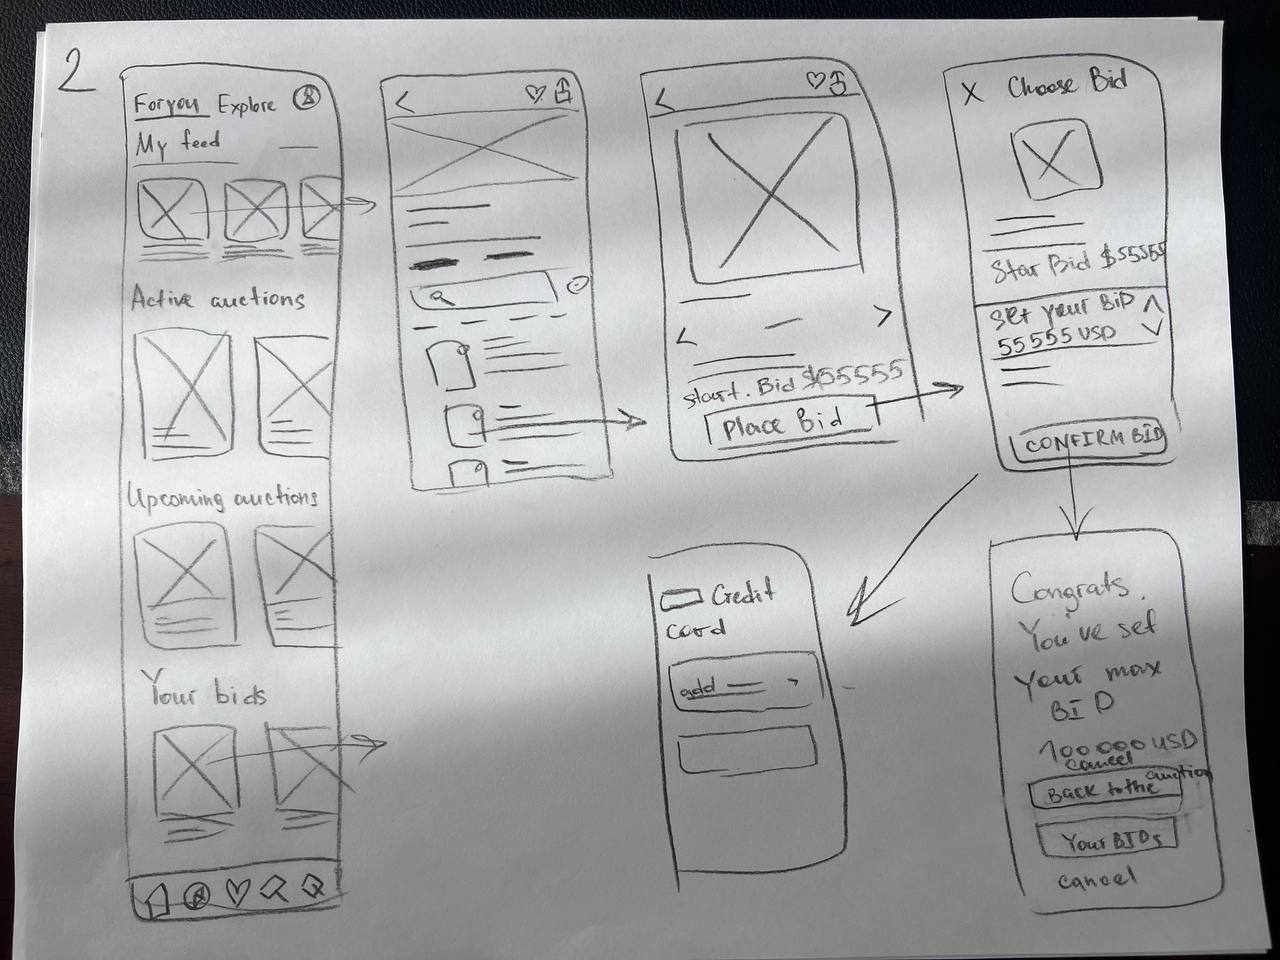 2
For you Explore
My feed
Active auctions
Upcoming auctions
Your bids
start. Bid $55555
Place Bid
X Choose Bid
Star Bid $55555
Set your BiD
55555 USD
CONFIRM BID
Credit
card
add
Congrats.
You've set
Your max
BID
100000 USD
cancel
Back to the auction
Your BIDs
cancel